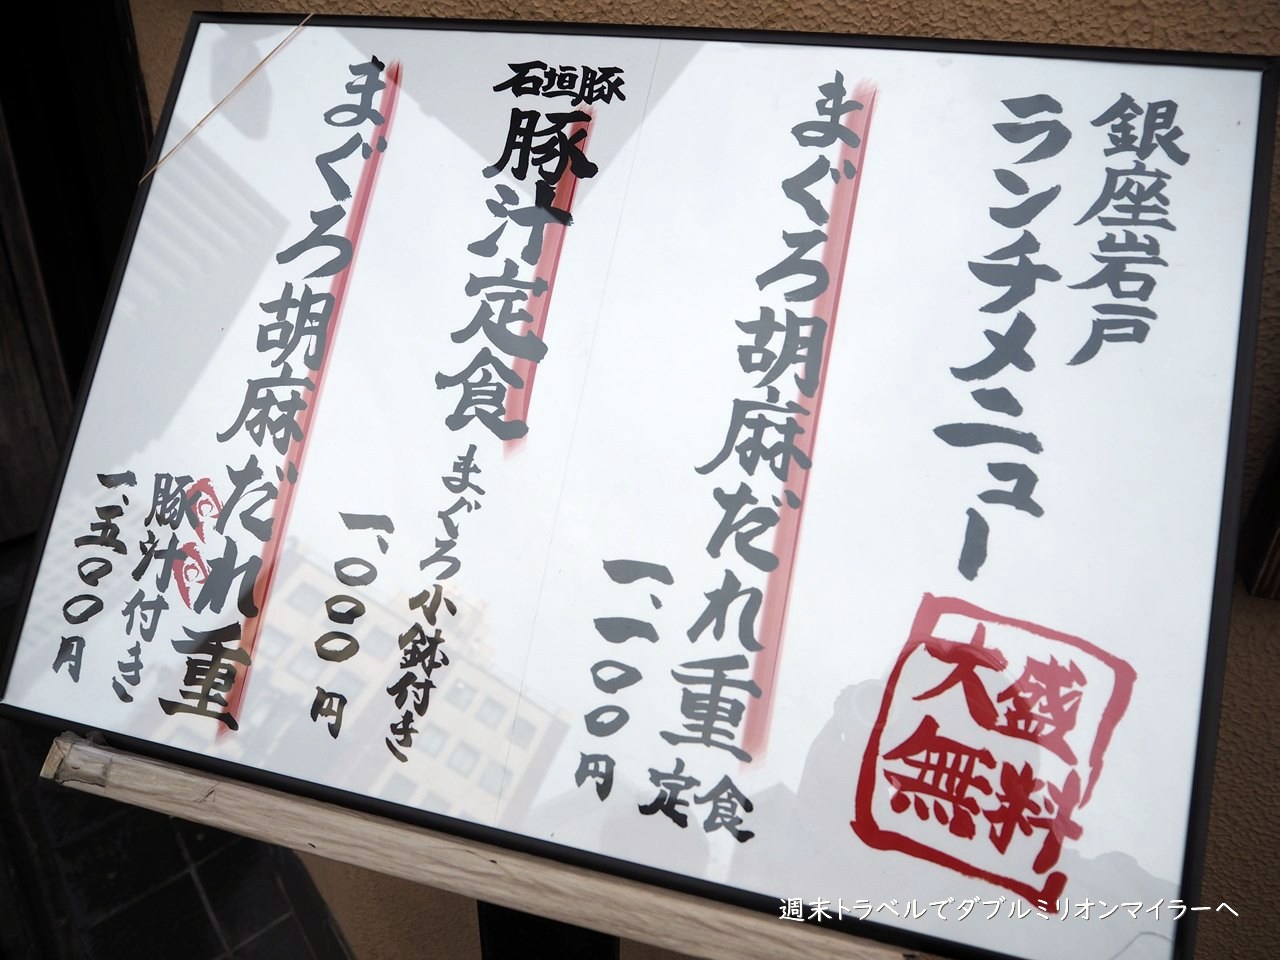 銀座岩戸
ランチメニュー
大盛
無料
まぐろ胡麻だれ重
定食
一、一〇〇円
石垣豚
豚汁定食
まぐろ小鉢付き
一、〇〇〇円
まぐろ胡麻だれ重
豚汁付き
一、五〇〇円
週末トラベルでダブルミリオンマイラーへ